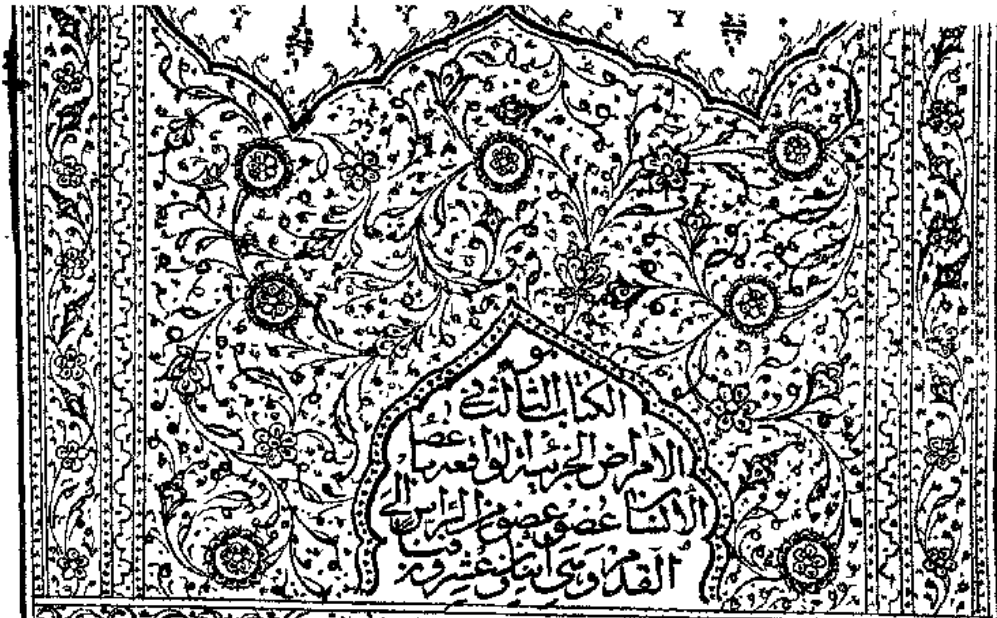 الكتاب الثالث في
الامراض الجزئية الواقعة باعضا
الانسان عضو عضو من الراس الى
القدم وهي اثنان وعشرون فنا